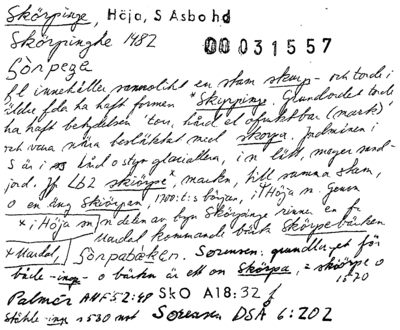 Skörpinge, Höja, S Åsbo hd
Skörpinghe 1482
00031557
Sörpega
fl innehåller sannolikt en stam skurp- och torde i
äldre fda ha haft formen *Skyrpinge. Grundordet torde
ha haft betydelsen 'torr, hård el ofruktbar (mark)'
och vara nära besläktat med skorpa. Jordmånen i
S är i hård o styv glaciallera, i n lätt, mager sand-
jord. Jf LB2 skiörpe*, marken, till samma stam,
o en äng Skiörpan, 1700:t:s början, i Höja sn. Genom
*i Höja sn n delen av byn Skörpinge rinner en fr
Uardal kommande bäck Skörpebäcken
*Uardal, Sörpabäken. Sørensen: grundlaget för
både -inge- o bäcken är ett än *Skörpa, = skiörpe o
1520
Palmér ANF 52:49 SkO A18:32 f
Ståhle -inge s 530 not Sørensen DSÅ 6:202